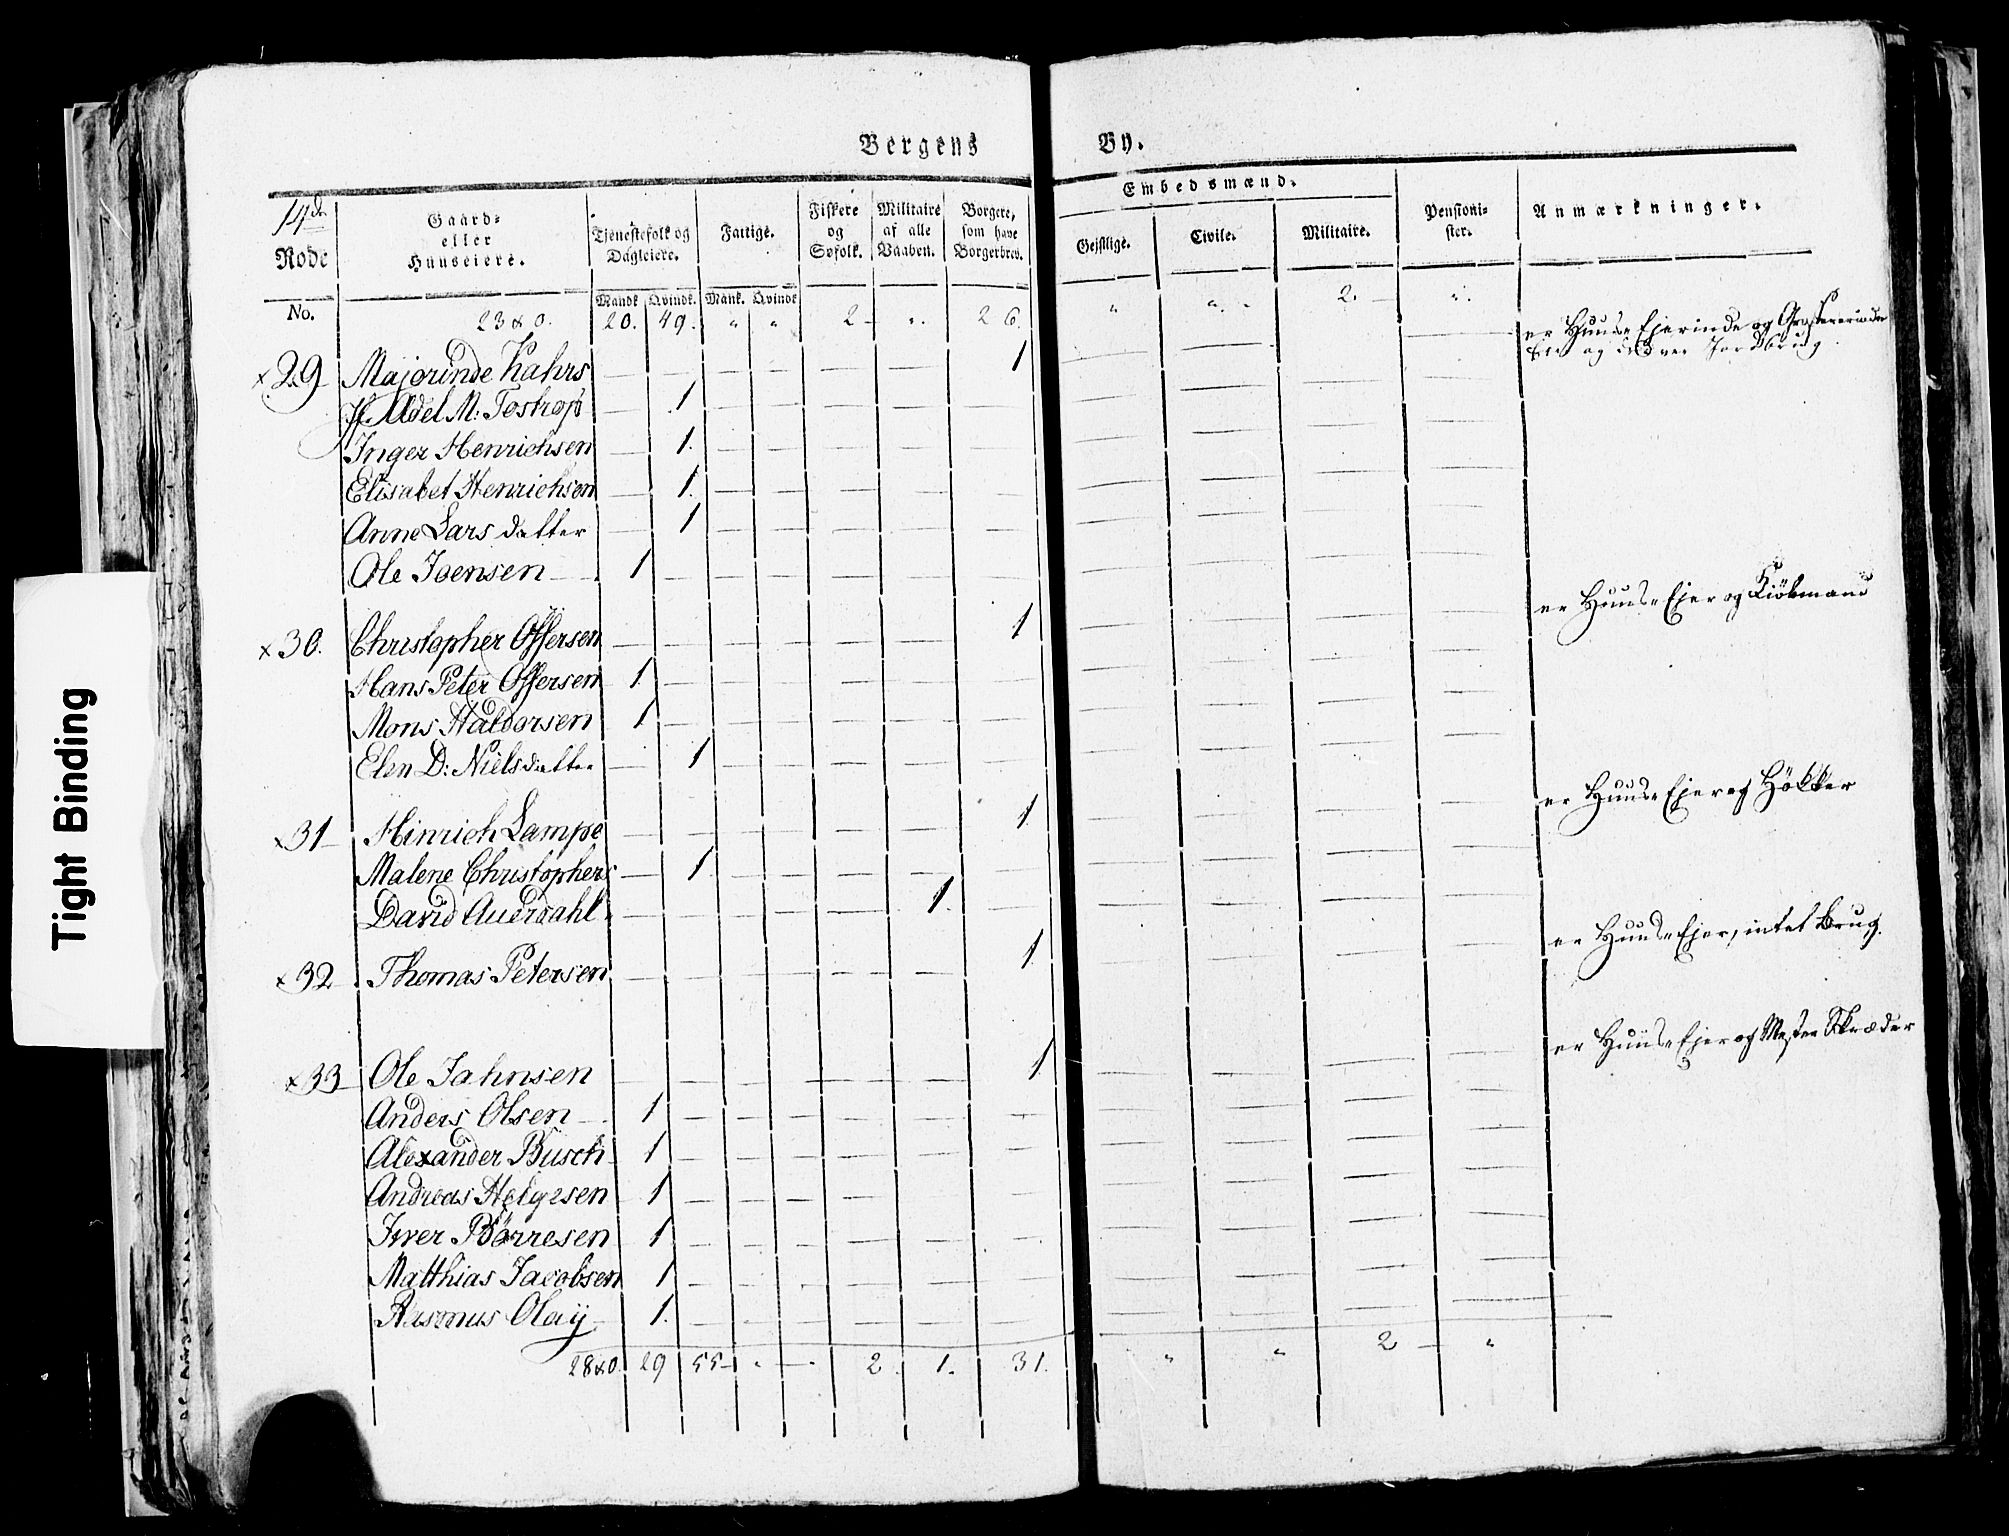 Bergens By.
14de
Rode
No.
Gaard-
eller
Huuseiere.
Tjenestefolk og
Dagleiere.
Mandk. Qvindk.
Fattige.
Mank. Qvindk.
Fiskere
og
Søfolk.
Militaire
af alle
Vaaben.
Borgere,
som have
Borgerbrev.
Embedsmænd.
Gejstlige. Civile. Militaire.
Pensioni-
ster.
Anmærkninger.
20. 49. " " 2 - ". 26. " ". - 2. - ".
x 29 Majorinde Kahrs — — — — — — 1 — — — — er Huus Ejerinde og
og Jordbrug.
Jf. Adel M: Tostrop — 1 — — — — — — — — —
Inger Henrichsen — 1. — — — — — — — — —
Elisabet Henrichsen — 1. — — — — — — — — —
Anne Lars datter — 1 — — — — — — — — —
Ole Joensen — 1 — — — — — — — — — —
x 30. Christopher Offersen — — — — — — 1 — — — — er Huus Ejer og Kiöbmand
Hans Peter Offersen 1. — — — — — — — — — —
Mons Haldorsen 1. — — — — — — — — — —
Elen D: Nielsdatter — 1 — — — — — — — — —
x 31 – Hinrich Lampe — — — — — — 1. — — — — er Huus Ejer og Hökker
Malene Christophers — 1. — — — — — — — — —
David Auerdahl — — — — — 1. — — — — —
x 32 . Thomas Petersen — — — — — — 1. — — — — er Huus Ejer, intet Brug.
x 33 – Ole Jahnsen — — — — — — 1 — — — — er Huus Ejer og Mester Skræder
Anders Olsen 1 — — — — — — — — — —
Alexander Busch 1 — — — — — — — — — —
Andreas Helgesen 1 — — — — — — — — — —
Iver Börresen 1 — — — — — — — — — —
Matthias Jacobsen 1 — — — — — — — — — —
Rasmus Olay 1. — — — — — — — — — —
29 55 – " – " 2 1. 31. " " 2 – "
Tight Binding